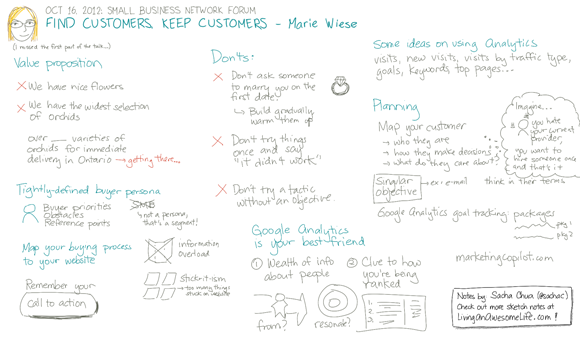 OCT 16, 2012: SMALL BUSINESS NETWORK FORUM
FIND CUSTOMERS, KEEP CUSTOMERS - Marie Wiese
(I missed the first part of the talk...)
Value proposition
X We have nice flowers
X We have the widest selection
of orchids
over ___ varieties of
orchids for immediate
delivery in Ontario → getting there...
Tightly-defined buyer persona
Buyer priorities
Obstacles
Reference points
SME
not a persona,
that's a segment!
Map your buying process
to your website
information
overload
Remember your
call to action
stick-it-ism
→ too many things
stuck on website
Don'ts:
X Don't ask someone
to marry you on the
first date!
↳ Build gradually,
warm them up
X Don't try things
once and say
"it didn't work"
X Don't try a tactic
without an objective
Google Analytics
is your best friend
① Wealth of info
about people
from?
resonate?
② Clue to how
you're being
ranked
1.
2.
3.
Some ideas on using Analytics
visits, new visits, visits by traffic type,
goals, keywords, top pages...
Planning
Map your customer
→ who they are
→ how they make decisions
→ what do they care about?
Imagine...
you hate
your current
provider,
you want to
hire someone new
and that's it
Singular
objective
→ ex: e-mail
think in their terms
Google Analytics goal tracking packages
pkg 1
pkg 2
marketingcopilot.com
Notes by Sacha Chua (@sachac)
Check out more sketch notes at
LivingAnAwesomeLife.com!